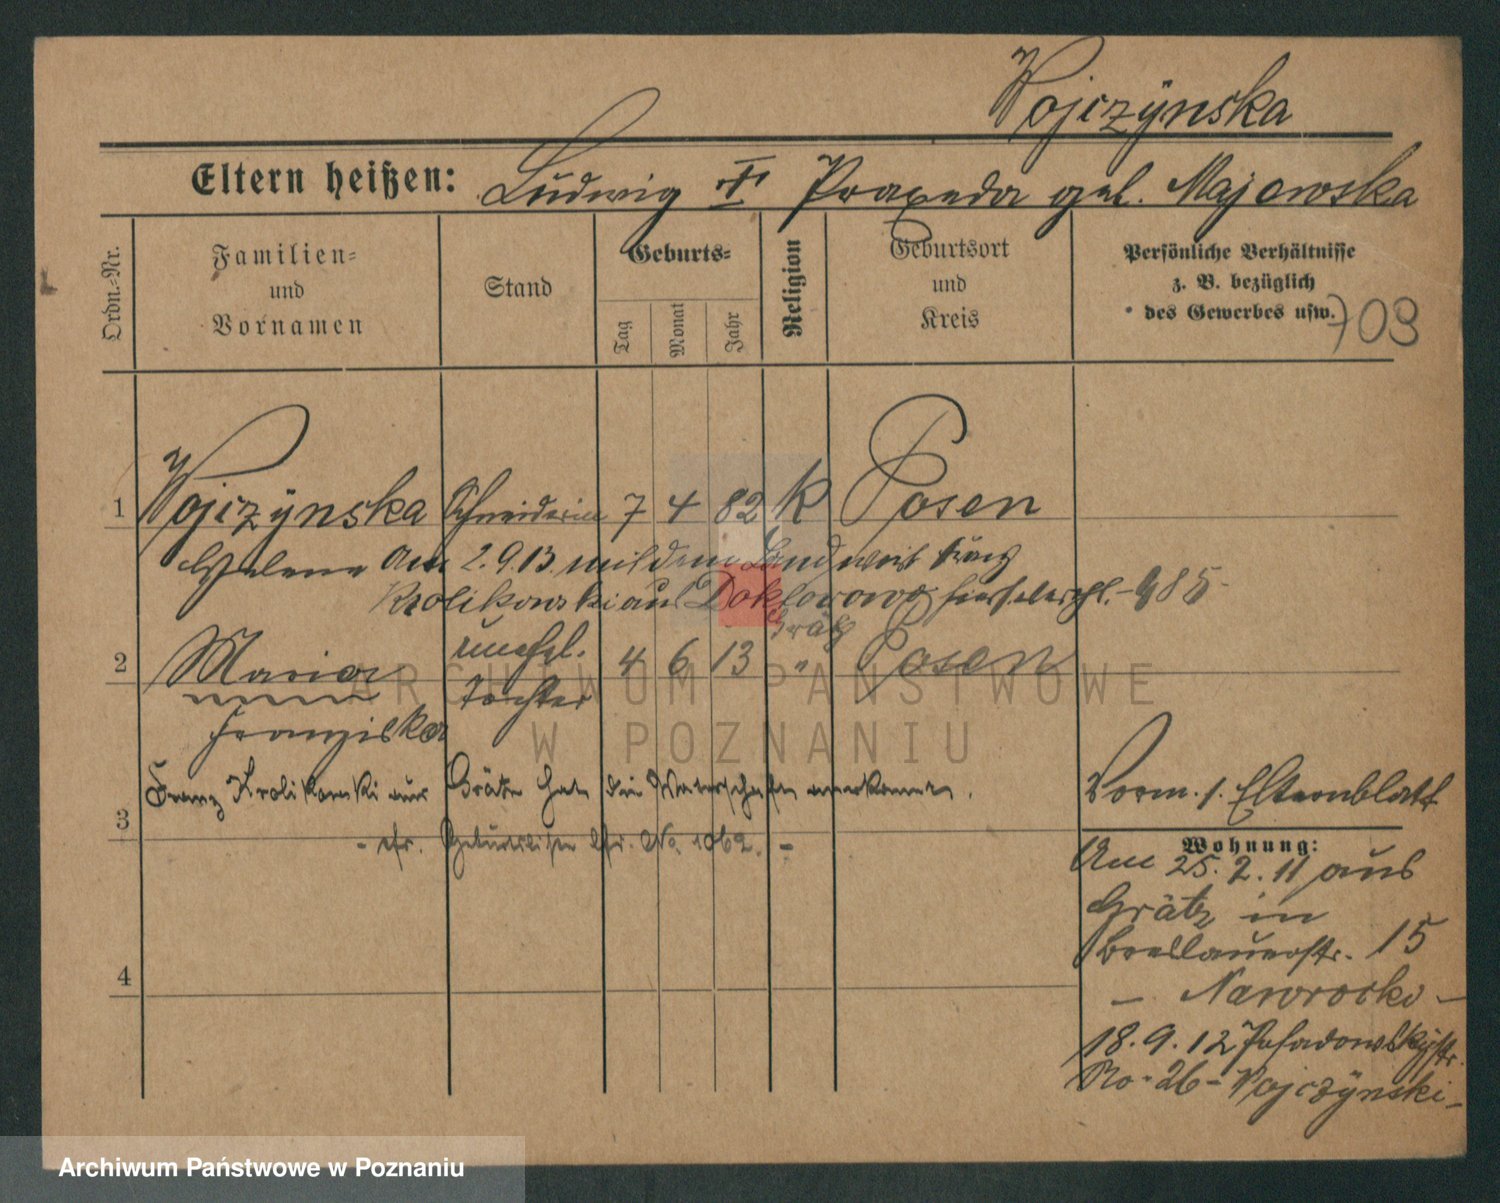 Wojczÿnska
Eltern heißen: Ludwig † Praxeda geb. Majewska
Ordn.-Nr.
Familien-
und
Vornamen
Stand
Geburts-
Tag
Monat
Jahr
Religion
Geburtsort
und
Kreis
Persönliche Verhältnisse
z. B. bezüglich
des Gewerbes usw.
703
1 Wojczÿnska Schneiderin 7 4 82 K Posen
Helene am 2.9.13 mit dem Landwirt Franz
Krolikowski aus Doktorowo 485
Grätz
2 Maria unehel. 4 6 13 " Posen
Tochter
Franziska
Franz Krolikowski aus Grätz hat die Vaterschaft anerkannt.
3
- cfr. No. 1062. -
4
Vorm. s. Elternblatt
Wohnung:
Am 25.2.11 aus
Grätz in
Breslauerstr. 15
- Nawrocki -
18.9.12 Posadowskÿstr.
No. 26 - Wojczÿnski -
ARCHIWUM PAŃSTWOWE
W POZNANIU
Archiwum Państwowe w Poznaniu